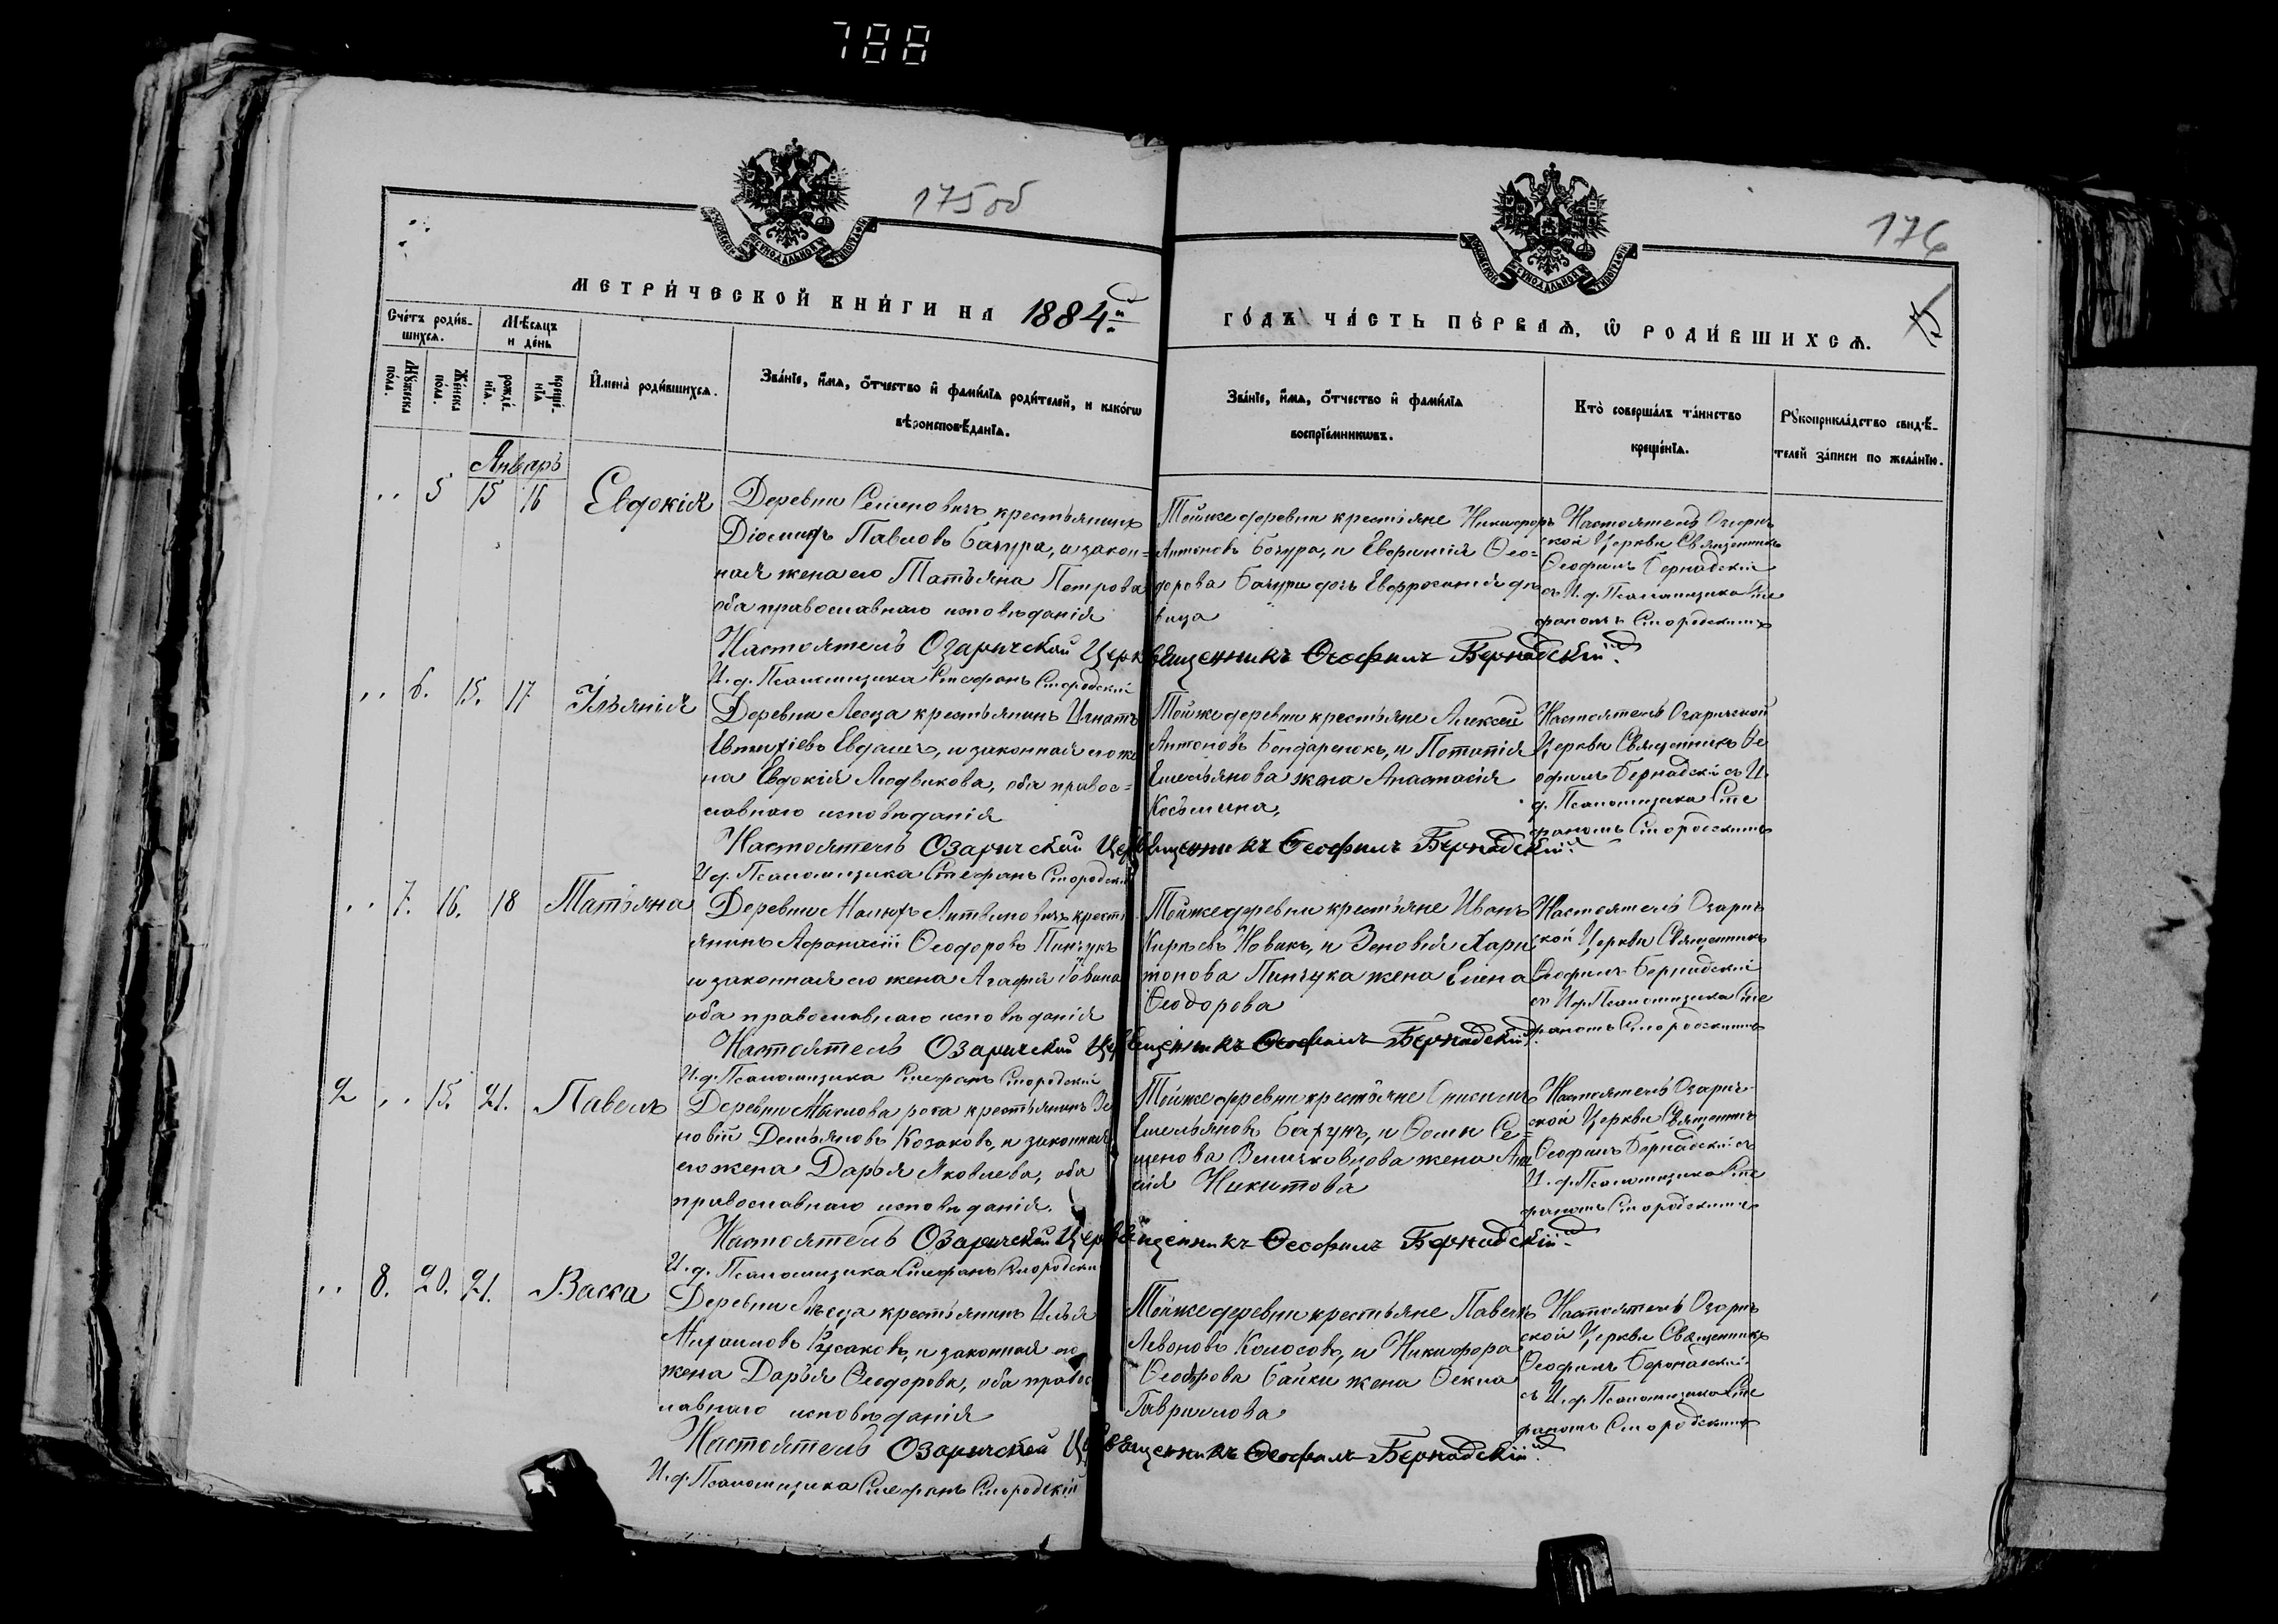 788
175 об
176
МЕТРИ́ЧЕСКОЙ КНИ́ГИ НА 1884й
ГО́ДЪ ЧА́СТЬ ПЕ́РВАѦ, Ѿ РОДИ́ВШИХСѦ.
Сче́тъ роди́в-
шихсѧ.
Мѣ́сяцъ
и де́нь
Мꙋ́жеска
по́ла.
Же́нска
по́ла.
рожде́-
нїѧ.
креще́-
нїѧ
И҆мена̀ роди́вшихсѧ.
Зва́нїе, и҆́мѧ, ѻ҆́тчество и҆ фами́лїѧ роди́телей, и како́гѡ
вѣроисповѣ́данїѧ.
Зва́нїе, и҆́мѧ, ѻ҆́тчество и҆ фами́лїѧ
воспрїе́мниковъ.
Кто̀ соверша́лъ та́инство
креще́нїѧ.
Рꙋкоприкла́дство свидѣ́-
телей за́писи по жела́нїю.
Январь
" 5 15 16 Евдокія
Деревни Семеновичъ крестьянинъ
Павловъ Бачура, и закон=
ная жена его Татьяна Петрова
оба православнаго исповѣданія
Тойже деревни крестьяне Никифоръ
Антоновъ Бачура, и Ѳео=
дорова Бачуры дочь Евфросинія дѣ
вица
Настоятель Озарич
ской Церкви Священникъ
Ѳеофилъ Бернадскій
съ И. д. Псаломщика Сте
фаномъ Смородскимъ
Настоятель Озаричской Церкви Священникъ Ѳеофилъ Бернадскій
И. д. Псаломщика Стефанъ Смородскій
" 6. 15. 17 Ульянія
Деревни Лесца крестьянинъ Игнатъ
Евтихіевъ и законная его же
на Евдокія Людвикова, оба правос=
лавнаго исповѣданія
Тойже деревни крестьяне Алексей
Антоновъ Бондаренокъ, и
Емельянова жена Анастасія
Косьмина,
Настоятель Озаричской
Церкви Священникъ Ѳе
офилъ Бернадскій съ И.
д. Псаломщика Сте
фаномъ Смородскимъ
Настоятель Озаричской Церкви Священникъ Ѳеофилъ Бернадскій
И. д. Псаломщика Стефанъ Смородскій
" 7. 16. 18 Татьяна
Деревни Литвиновичъ кресть
янинъ Афанасій Ѳеодоровъ Пинчукъ
и законная его жена Агафія
оба православнаго исповѣданія
Тойже деревни крестьяне Иванъ
Новикъ, и Зеновія Хари
тонова Пинчука жена Елена
Ѳеодорова
Настоятель Озарич
ской Церкви Священникъ
Ѳеофилъ Бернадскій
съ И. д. Псаломщика Сте
фаномъ Смородскимъ
Настоятель Озаричской Церкви Священникъ Ѳеофилъ Бернадскій
И. д. Псаломщика Стефанъ Смородскій
2 " 15. 21. Павелъ
Деревни рога крестьянинъ Зе
новій Демьяновъ Козаковъ, и законная
его жена Дарья Яковлева, оба
православнаго исповѣданія.
Тойже деревни крестьяне Онисимъ
Емельяновъ и Ѳомы Се=
менова жена
Никитова
Настоятель Озарич-
ской Церкви Священникъ
Ѳеофилъ Бернадскій съ
И. д. Псаломщика Сте
фаномъ Смородскимъ
Настоятель Озаричской Церкви Священникъ Ѳеофилъ Бернадскій
И. д. Псаломщика Стефанъ Смородскій
" 8. 20. 21. Васса
Деревни крестьянинъ Илья
Михаиловъ и законная его
жена Дарья Ѳеодорова, оба правос
лавнаго исповѣданія
Тойже деревни крестьяне Павелъ
Левоновъ Колосовъ, и Никифора
Ѳеодорова Байки жена Ѳекла
Гаврилова
Настоятель Озарич
ской Церкви Священникъ
Ѳеофилъ Бернадскій
съ И. д. Псаломщика Сте
фаномъ Смородскимъ
Настоятель Озаричской Церкви Священникъ Ѳеофилъ Бернадскій
И. д. Псаломщика Стефанъ Смородскій